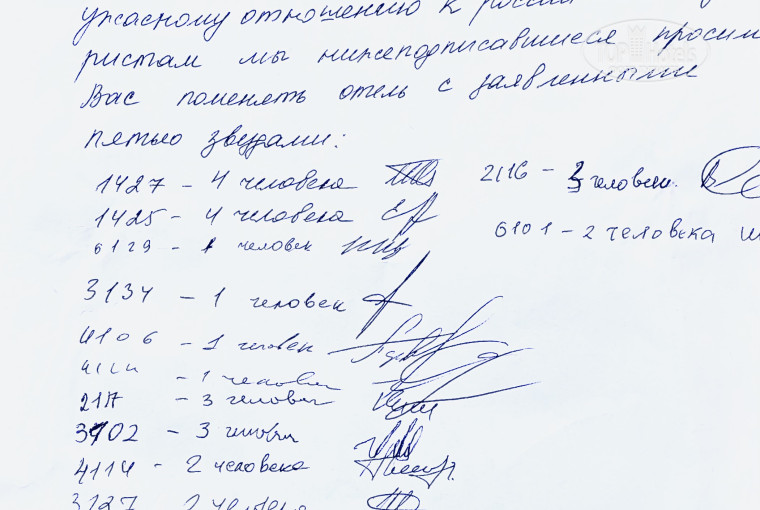 ужасному отношению к росси
ристам мы нижеподписавшиеся просим
Вас поменять отель с заявленными
пятью звездами:
1427 - 4 человека
2116 - 3 человек.
1425 - 4 человека
6101 - 2 человека
6129 - 1 человек
3134 - 1 человек
4106 - 1 человек
- 1 человек
2117 - 3 человек
3702 - 3 человек
4114 - 2 человека
3127 - 2 человека